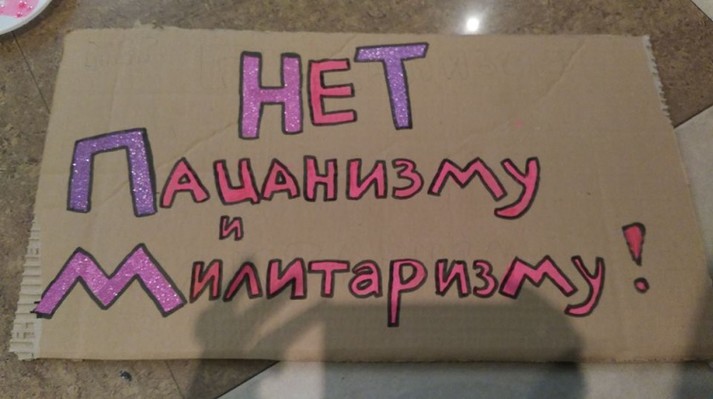 НЕТ
Пацанизму
и
Милитаризму!